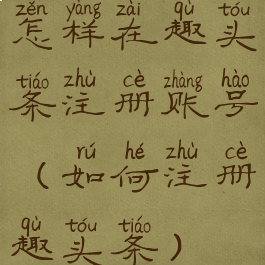 zěn yàng zài qù tóu
怎样在趣头
tiáo zhù cè zhàng hào
条注册账号
rú hé zhù cè
（如何注册
qù tóu tiáo
趣头条）